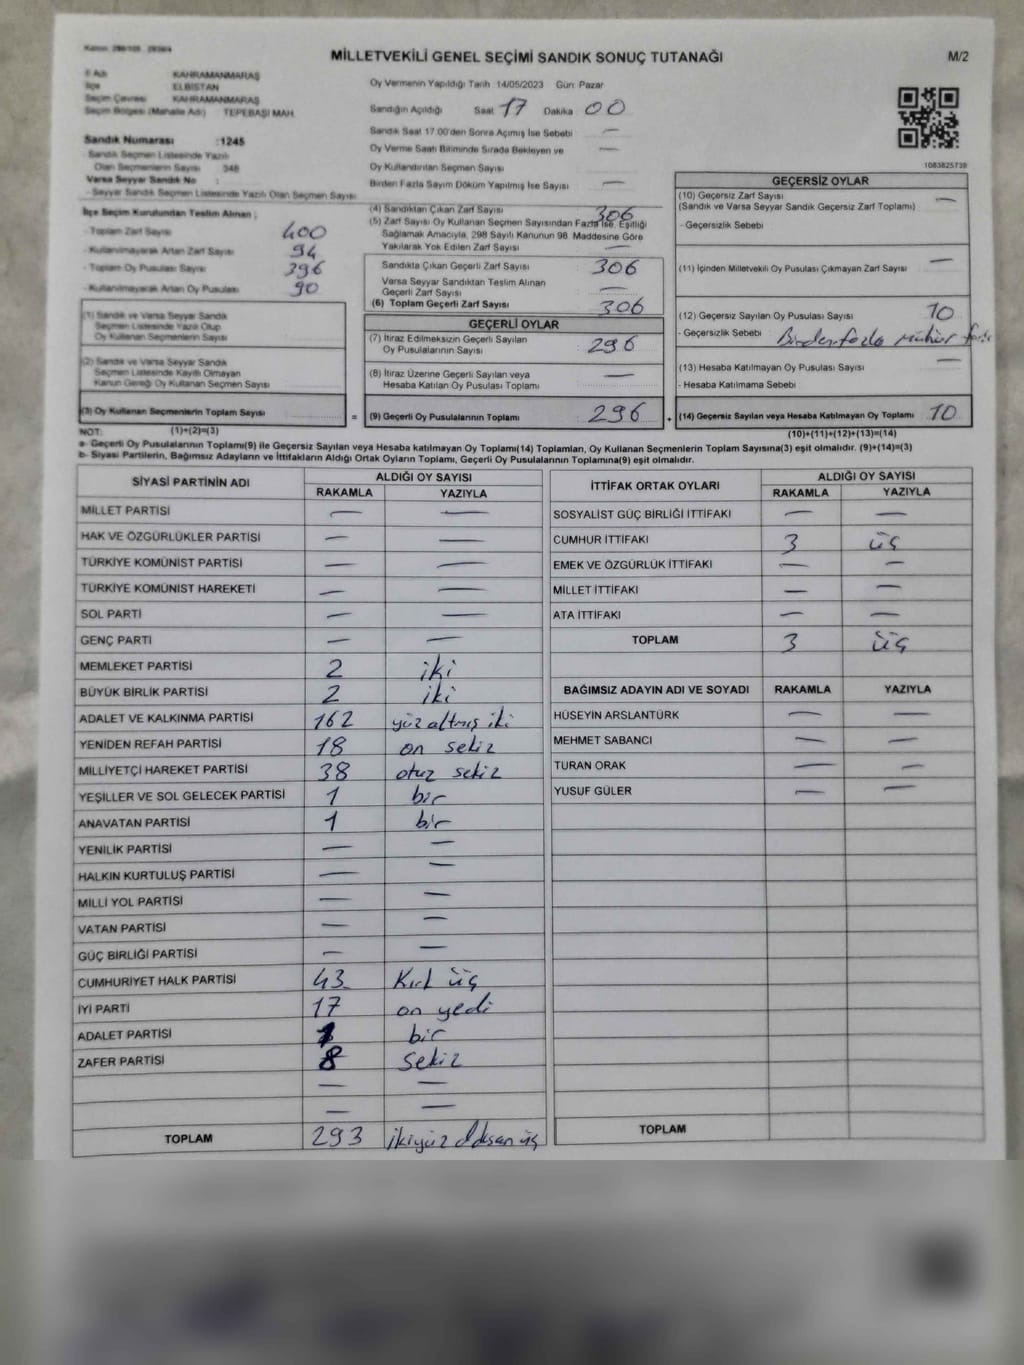 MİLLETVEKİLİ GENEL SEÇİMİ SANDIK SONUÇ TUTANAĞI
M/2
İl Adı KAHRAMANMARAŞ
İlçe ELBİSTAN
Seçim Çevresi KAHRAMANMARAŞ
Seçim Bölgesi (Mahalle Adı) TEPEBAŞI MAH.
Sandık Numarası :1245
- Sandık Seçmen Listesinde Yazılı
Olan Seçmenlerin Sayısı 348
Varsa Seyyar Sandık No :
- Seyyar Sandık Seçmen Listesinde Yazılı Olan Seçmen Sayısı
İlçe Seçim Kurulundan Teslim Alınan ;
- Toplam Zarf Sayısı 400
- Kullanılmayarak Artan Zarf Sayısı 94
- Toplam Oy Pusulası Sayısı 396
- Kullanılmayarak Artan Oy Pusulası 90
(1) Sandık ve Varsa Seyyar Sandık
Seçmen Listesinde Yazılı Olup
Oy Kullanan Seçmenlerin Sayısı
(2) Sandık ve Varsa Seyyar Sandık
Seçmen Listesinde Kayıtlı Olmayan
Kanun Gereği Oy Kullanan Seçmen Sayısı
(3) Oy Kullanan Seçmenlerin Toplam Sayısı =
Oy Vermenin Yapıldığı Tarih 14/05/2023 Gün: Pazar
Sandığın Açıldığı Saat 17 Dakika 00
Sandık Saat 17.00'den Sonra Açılmış İse Sebebi —
Oy Verme Saati Bitiminde Sırada Bekleyen ve —
Oy Kullandırılan Seçmen Sayısı
Birden Fazla Sayım Döküm Yapılmış İse Sayısı —
(4) Sandıktan Çıkan Zarf Sayısı 306
(5) Zarf Sayısı Oy Kullanan Seçmen Sayısından Fazla İse, Eşitliği
Sağlamak Amacıyla, 298 Sayılı Kanunun 98. Maddesine Göre
Yakılarak Yok Edilen Zarf Sayısı —
Sandıkta Çıkan Geçerli Zarf Sayısı 306
Varsa Seyyar Sandıktan Teslim Alınan
Geçerli Zarf Sayısı —
(6) Toplam Geçerli Zarf Sayısı 306
GEÇERLİ OYLAR
(7) İtiraz Edilmeksizin Geçerli Sayılan
Oy Pusulalarının Sayısı 296
(8) İtiraz Üzerine Geçerli Sayılan veya
Hesaba Katılan Oy Pusulası Toplamı —
(9) Geçerli Oy Pusulalarının Toplamı 296 +
1083825739
GEÇERSİZ OYLAR
(10) Geçersiz Zarf Sayısı —
(Sandık ve Varsa Seyyar Sandık Geçersiz Zarf Toplamı)
- Geçersizlik Sebebi
(11) İçinden Milletvekili Oy Pusulası Çıkmayan Zarf Sayısı —
(12) Geçersiz Sayılan Oy Pusulası Sayısı 10
- Geçersizlik Sebebi : Birden fazla mühür
(13) Hesaba Katılmayan Oy Pusulası Sayısı —
- Hesaba Katılmama Sebebi
(14) Geçersiz Sayılan veya Hesaba Katılmayan Oy Toplamı 10
NOT: (1)+(2)=(3) (10)+(11)+(12)+(13)=(14)
a- Geçerli Oy Pusulalarının Toplamı(9) ile Geçersiz Sayılan veya Hesaba katılmayan Oy Toplamı(14) Toplamları, Oy Kullanan Seçmenlerin Toplam Sayısına(3) eşit olmalıdır. (9)+(14)=(3)
b- Siyasi Partilerin, Bağımsız Adayların ve İttifakların Aldığı Ortak Oyların Toplamı, Geçerli Oy Pusulalarının Toplamına(9) eşit olmalıdır.
SİYASİ PARTİNİN ADI ALDIĞI OY SAYISI
RAKAMLA YAZIYLA
MİLLET PARTİSİ — —
HAK VE ÖZGÜRLÜKLER PARTİSİ — —
TÜRKİYE KOMÜNİST PARTİSİ — —
TÜRKİYE KOMÜNİST HAREKETİ — —
SOL PARTİ — —
GENÇ PARTİ — —
MEMLEKET PARTİSİ 2 iki
BÜYÜK BİRLİK PARTİSİ 2 iki
ADALET VE KALKINMA PARTİSİ 162 yüz altmış iki
YENİDEN REFAH PARTİSİ 18 on sekiz
MİLLİYETÇİ HAREKET PARTİSİ 38 otuz sekiz
YEŞİLLER VE SOL GELECEK PARTİSİ 1 bir
ANAVATAN PARTİSİ 1 bir
YENİLİK PARTİSİ — —
HALKIN KURTULUŞ PARTİSİ — —
MİLLİ YOL PARTİSİ — —
VATAN PARTİSİ — —
GÜÇ BİRLİĞİ PARTİSİ — —
CUMHURİYET HALK PARTİSİ 43 Kırk üç
İYİ PARTİ 17 on yedi
ADALET PARTİSİ 1 bir
ZAFER PARTİSİ 8 sekiz
— —
— —
TOPLAM 293 ikiyüz doksan üç
İTTİFAK ORTAK OYLARI ALDIĞI OY SAYISI
RAKAMLA YAZIYLA
SOSYALİST GÜÇ BİRLİĞİ İTTİFAKI — —
CUMHUR İTTİFAKI 3 üç
EMEK VE ÖZGÜRLÜK İTTİFAKI — —
MİLLET İTTİFAKI — —
ATA İTTİFAKI — —
TOPLAM 3 üç
BAĞIMSIZ ADAYIN ADI VE SOYADI RAKAMLA YAZIYLA
HÜSEYİN ARSLANTÜRK — —
MEHMET SABANCI — —
TURAN ORAK — —
YUSUF GÜLER — —
TOPLAM